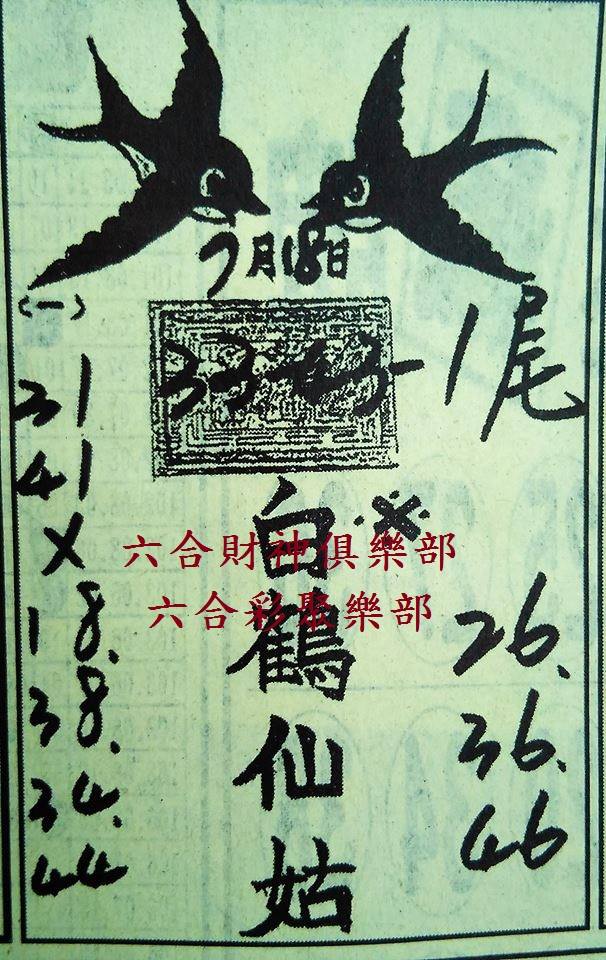 7月18日
(一)
33-43-1尾
31
41
X
18.
38.
34.
44
白鶴仙姑
六合財神俱樂部
六合彩聚樂部
26.
36.
46